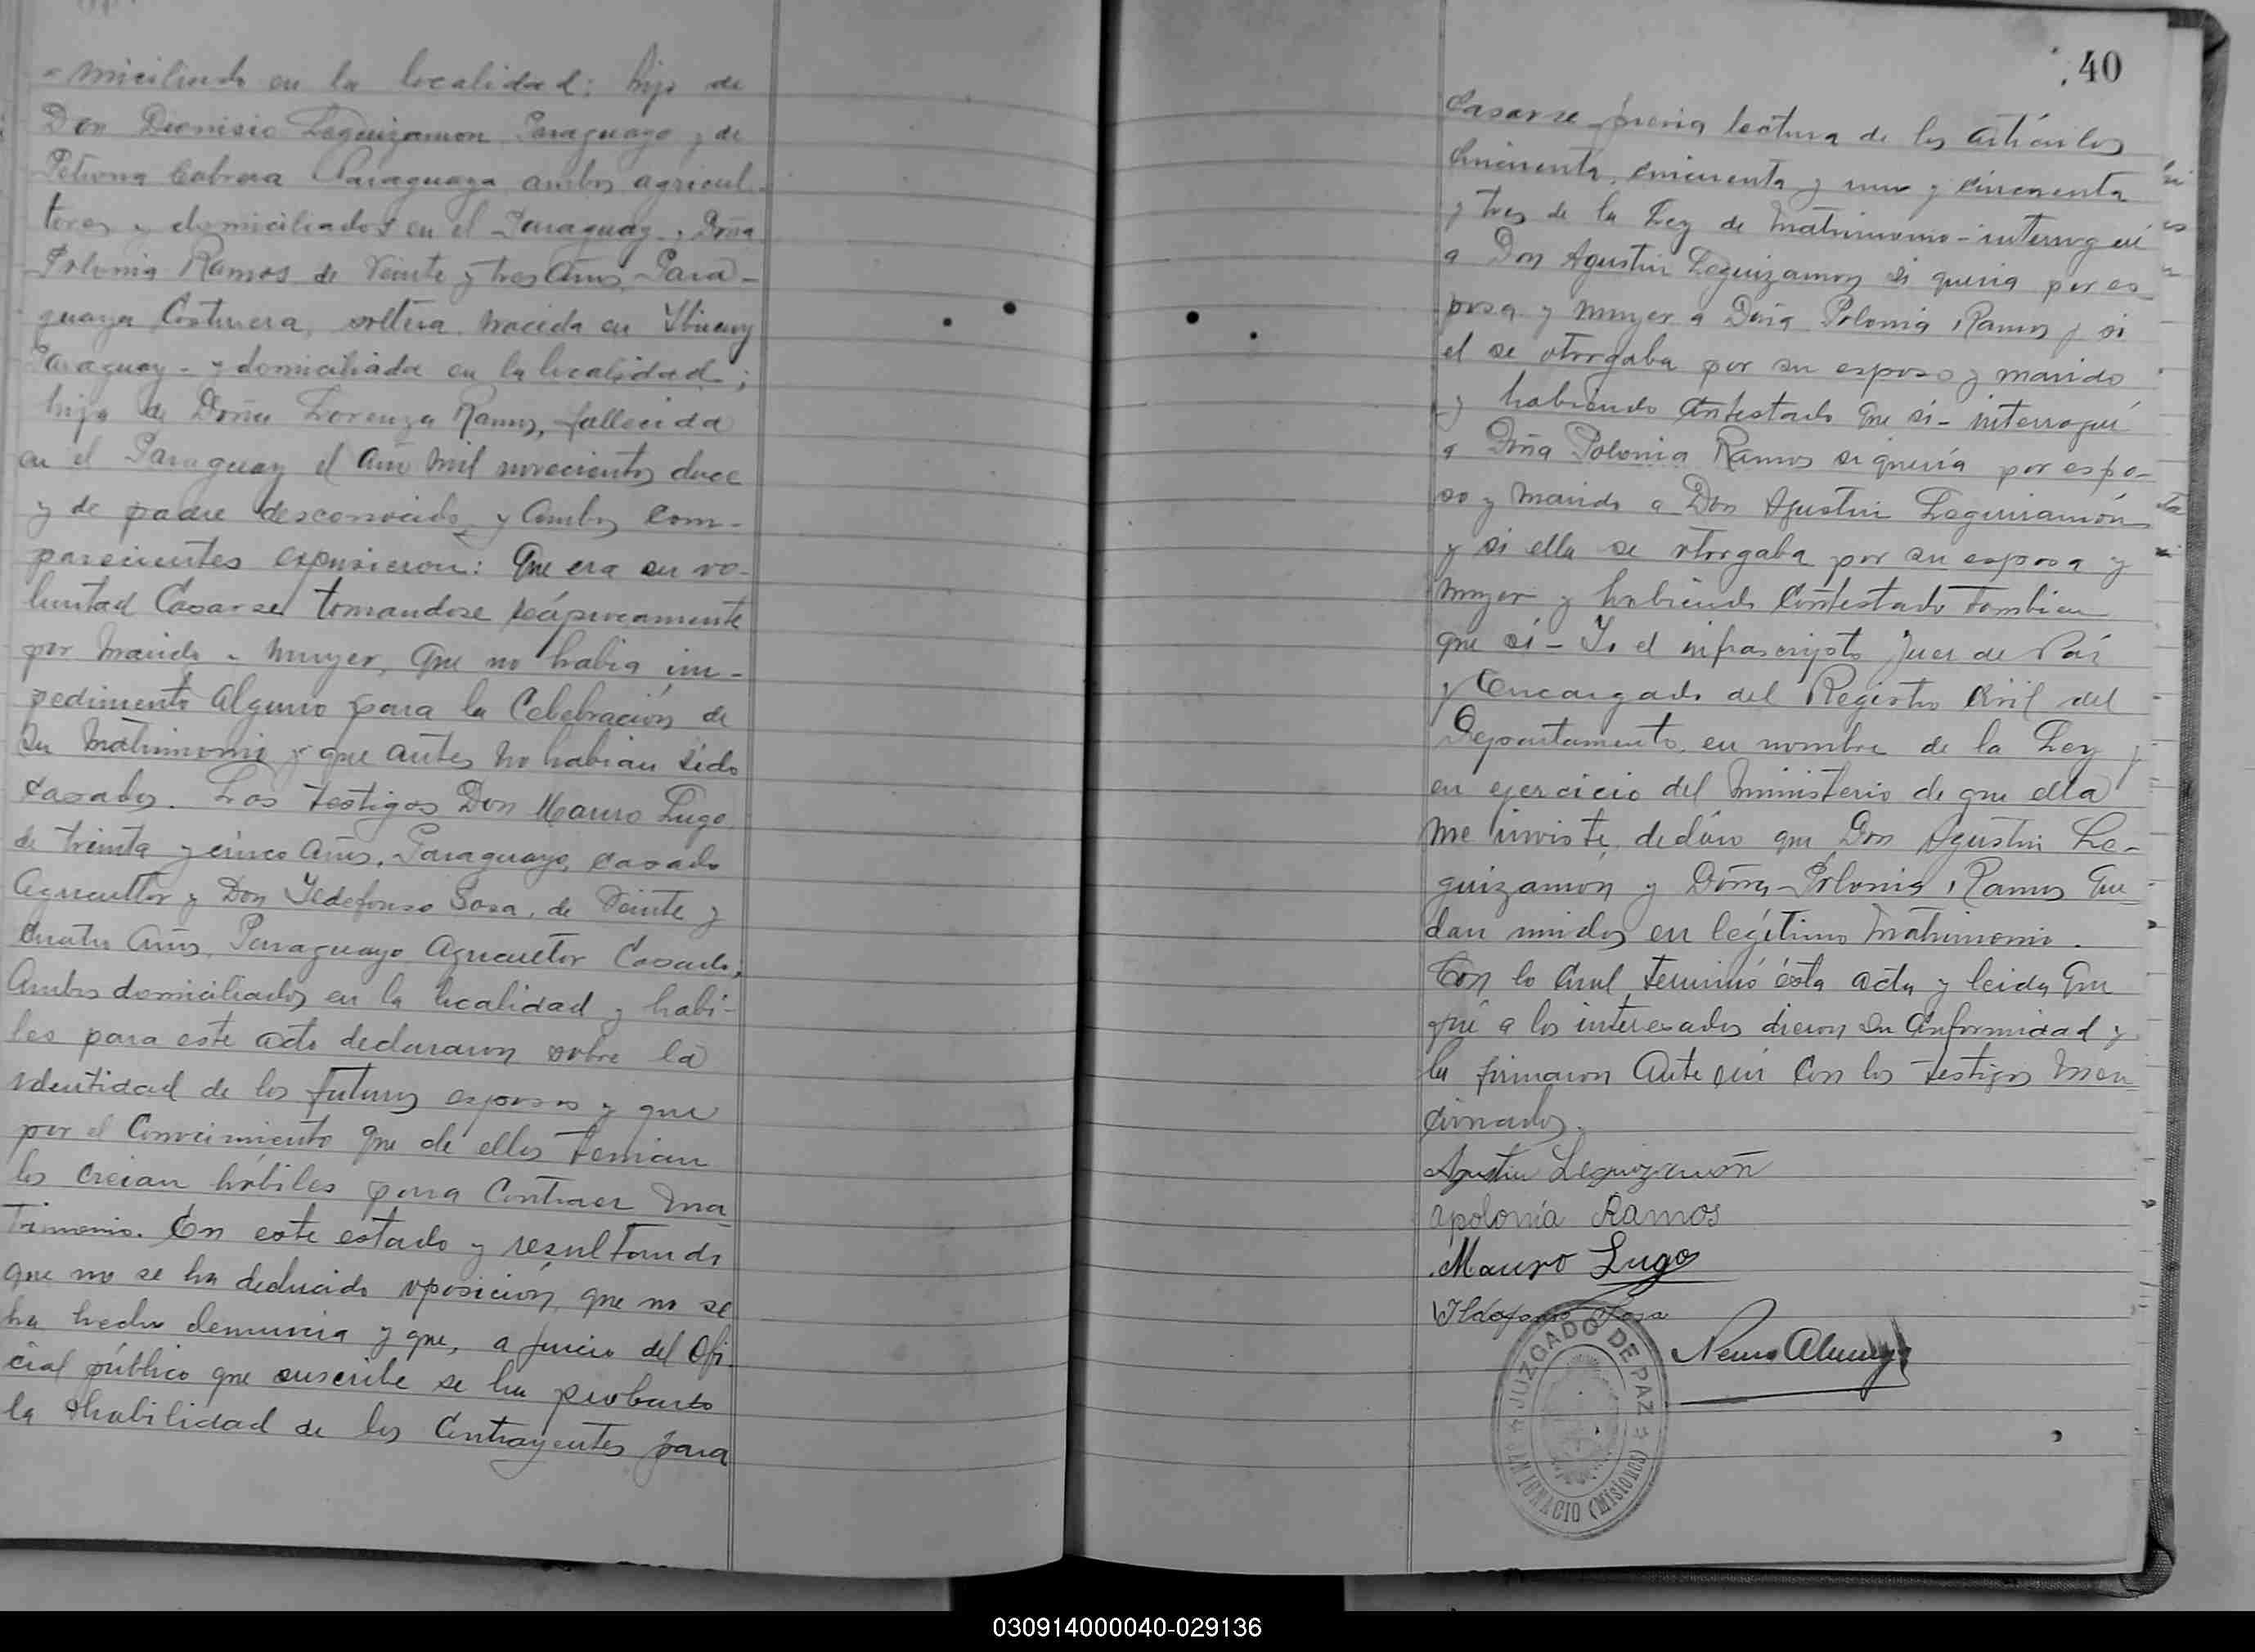 miciliado en la localidad; hijo de
Don Dionisio Leguizamon Paraguayo y de
Petrona Cabrera Paraguaya ambos agricul-
tores y domiciliados en el Paraguay, Doña
Polonia Ramos de Veinte y tres años, Para-
guaya Costurera, soltera nacida en
Paraguay - y domiciliada en la localidad;
hija de Doña Lorenza Ramos, fallecida
en el Paraguay el año mil novecientos doce
y de padre desconocido y ambos com-
parecientes expusieron: Que era su vo-
luntad Casarse tomandose
por marido y muger, Que no habia im-
pedimento alguno para la Celebración de
su matrimonio y que antes no habian sido
casados. Los testigos Don Mauro Lugo
de treinta y cinco años, Paraguayo, casado
Agricultor y Don Yldefonso Sosa, de Veinte y
cuatro años, Paraguayo Agricultor Casado,
Ambos domiciliados en la localidad y habi-
les para este acto declararon sobre la
identidad de los futuros esposos y que
por el Conocimiento que de ellos tenian
los creian hábiles para Contraer ma-
trimonio. En este estado y resultando
que no se ha deducido oposición, que no se
ha hecho denuncia y que, a juicio del Ofi-
cial público que suscribe se ha probado
la habilidad de los Contrayentes para
40
Casarse previa lectura de los artículos
Cincuenta, cincuenta y uno y cincuenta
y tres de la Ley de Matrimonio - interrogué
a Don Agustin Leguizamon si queria por es-
posa y muger a Doña Polonia Ramos y si
el se otorgaba por su esposo y marido
y habiendo Contestado que si - interrogué
a Doña Polonia Ramos si quería por espo-
so y marido a Don Agustin Leguizamón
y si ella se otorgaba por su esposa y
muger y habiendo Contestado tambien
que sí - Yo el infrascripto Juez de Paz
y Encargado del Registro Civil del
Departamento, en nombre de la Ley y
en ejercicio del Ministerio de que ella
me inviste, declaro que Don Agustin Le-
guizamon y Doña Polonia Ramos que-
dan unidos en legítimo Matrimonio.
Con lo Cual terminó ésta acta y leida que
fué a los interesados dieron su Conformidad y
la firmaron Ante mi Con los testigos men-
cionados.
Agustin Leguizamón
apolonia Ramos
Mauro Lugo
Yldefonso Sosa
JUZGADO DE PAZ
IGNACIO (MISIONES)
030914000040-029136